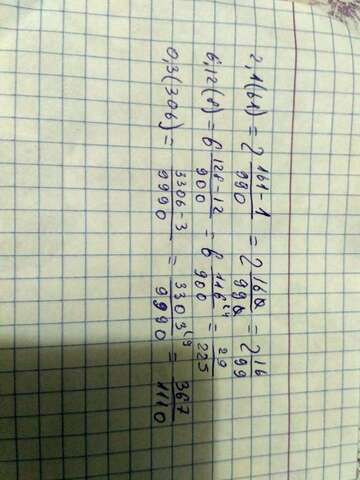 2,1(61) = 2 161-1/990 = 2 160/990 = 2 16/99
6,12(8) = 6 128-12/900 = 6 116/900 = 29/225
0,3(306) = 3306-3/9990 = 3303/9990 = 367/1110